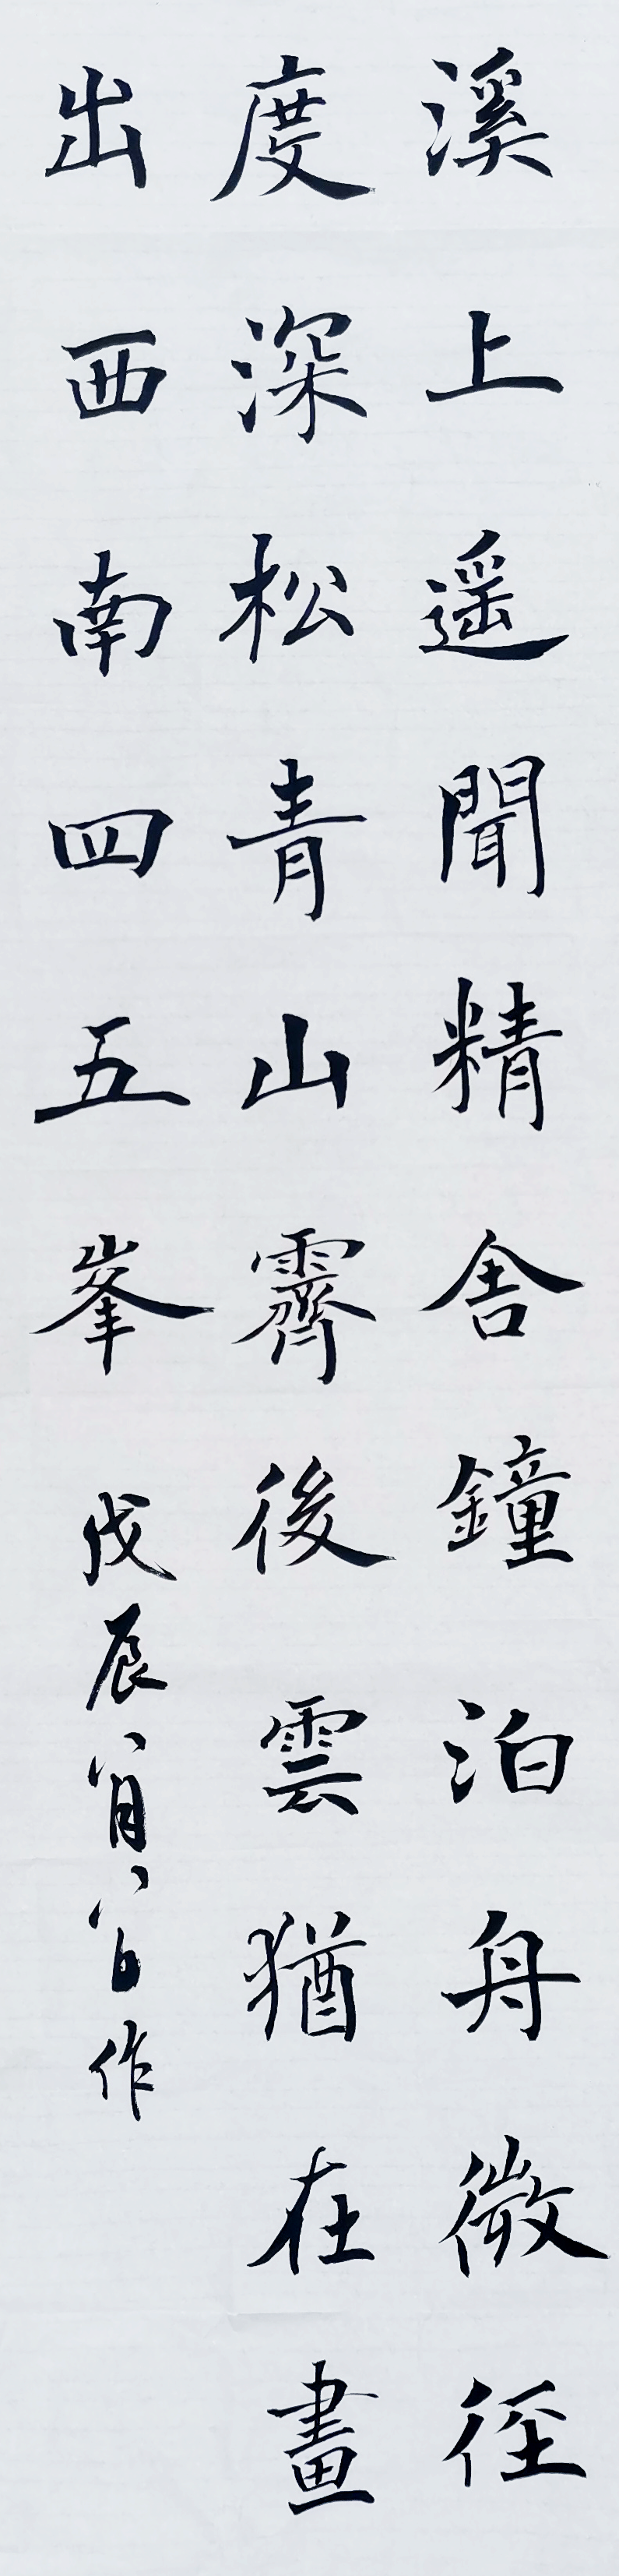 溪上遥聞精舍鐘泊舟微徑
度深松青山霽後雲猶在畫
出西南四五峯戊辰八月八日作